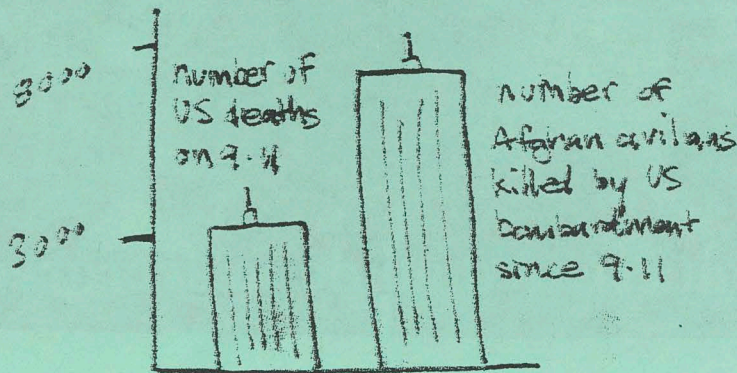 8000
number of
US deaths
on 9-11
number of
Afghan civilians
killed by US
bombardment
since 9-11
3000